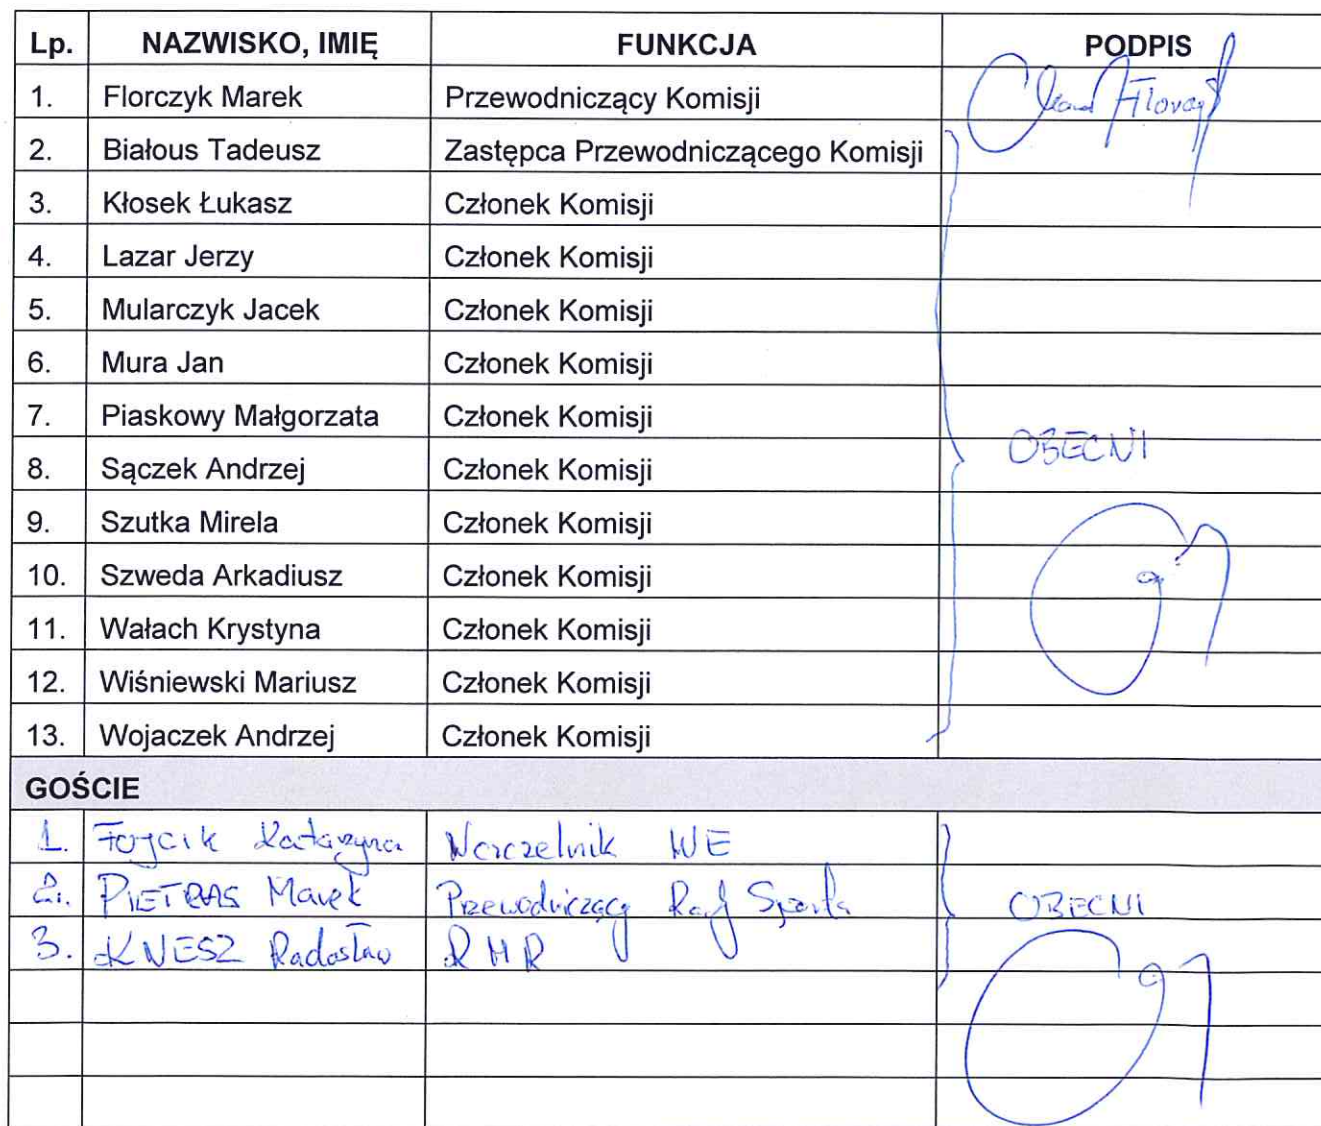 Lp. NAZWISKO, IMIĘ FUNKCJA PODPIS
1. Florczyk Marek Przewodniczący Komisji
2. Białous Tadeusz Zastępca Przewodniczącego Komisji
3. Kłosek Łukasz Członek Komisji
4. Lazar Jerzy Członek Komisji
5. Mularczyk Jacek Członek Komisji
6. Mura Jan Członek Komisji
7. Piaskowy Małgorzata Członek Komisji
8. Sączek Andrzej Członek Komisji OBECNI
9. Szutka Mirela Członek Komisji
10. Szweda Arkadiusz Członek Komisji
11. Wałach Krystyna Członek Komisji
12. Wiśniewski Mariusz Członek Komisji
13. Wojaczek Andrzej Członek Komisji
GOŚCIE
1. Katarzyna Naczelnik WE
2. PIETRAS Marek Przewodniczący Rady Sportu OBECNI
3. KNESZ Radosław RMR